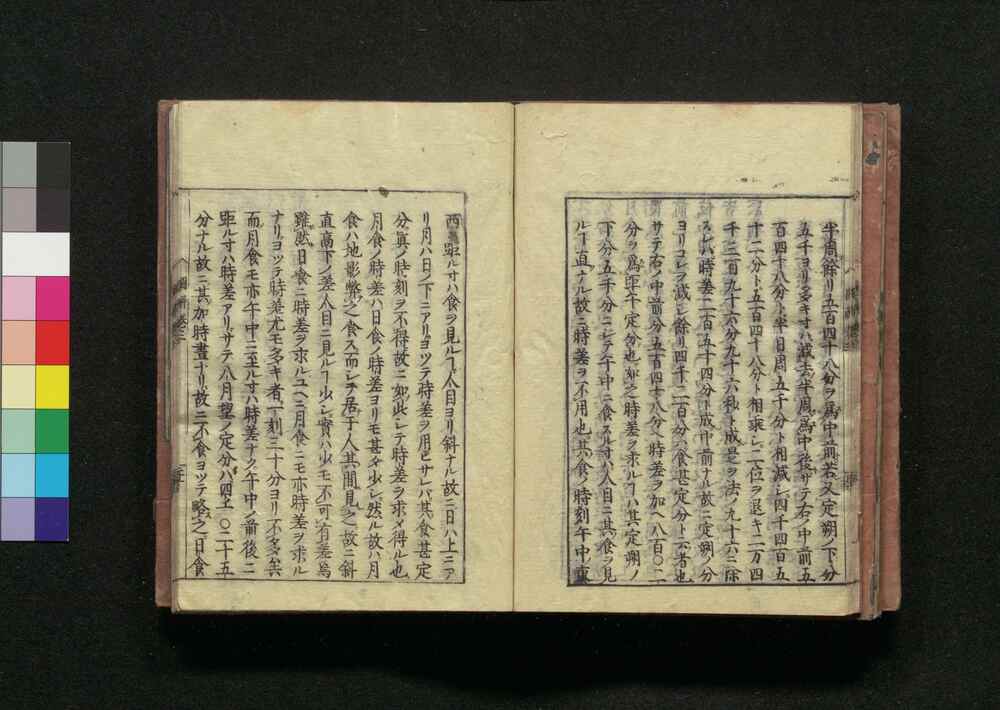 半周餘リ五百四十八分ヲ爲中前若又定朔ノ下分
五千ヨリ多キ寸ハ減去半周爲中後サテ右ノ中前五
百四十八分ト半日周五千分ト相減シ四千四百五
十二分ト五百四十八分ト相乗シ二位ヲ退キ二万四
千三百九十六分九十六秒ト成是ヲ法ノ九十六ニ除
スレハ時差二百五十四分ト成中前ナル故ニ定朔ノ分
ヨリコレヲ減シ餘リ四千二百分ハ食甚定分ト云者也
サテ右ノ中前分五百四十八分ヘ時差ヲ加ヘ八百〇二
分ヲ爲距午定分也如之時差ヲ求ルヿハ其定朔ノ
下分五千分ニシテ午中ニ食スル寸ハ人目ニ其食ヲ見
ルヿ直ナル故ニ時差ヲ不用也其食ノ時刻午中東
西ニ距ル寸ハ食ヲ見ルヿ人目ヨリ斜ナル故ニ日ハ上ニア
リ月ハ日ノ下ニアリヨツテ時差ヲ用ヒサレバ其食甚定
分眞ノ時刻ヲ不得故ニ如此シテ時差ヲ求メ得ル也
月食ノ時差ハ日食ノ時差ヨリモ甚タ少シ然ル故ハ月
食ハ地影弊之食ス而シテ居于人其間見之故ニ斜
直高下ノ差人目ニ見ルヿ少シ實ハ少モ不可有差焉
雖然日食ニ時差ヲ求ルユヘニ月食ニモ亦時差ヲ求ル
ナリヨツテ時差尤モ多キ者一刻三十分ヨリ不多矣
而月食モ亦午中ニ至ル寸ハ時差ナク午中ノ前後ニ
距ル寸ハ時差アリサテ八月望ノ定分ハ四十〇二十五
分ナル故ニ其加時晝ナリ故ニ不食ヨツテ略之日食